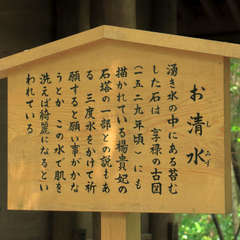 お清水
しみず
湧き水の中にある苔む
した石は 享禄の古図
(一五二九年頃)にも
描かれている楊貴妃の
石塔の一部との説もあ
る 三度水をかけて祈
願すると願い事がかな
うとか この水で肌を
洗えば綺麗になるとい
われている